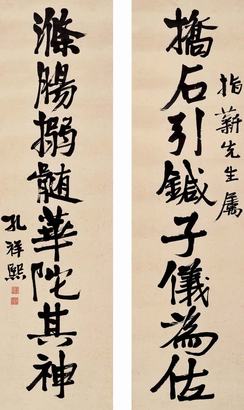 指薪先生屬
撟石引鍼子儀為佐
滌腸搦髓華陀其神
孔祥熙